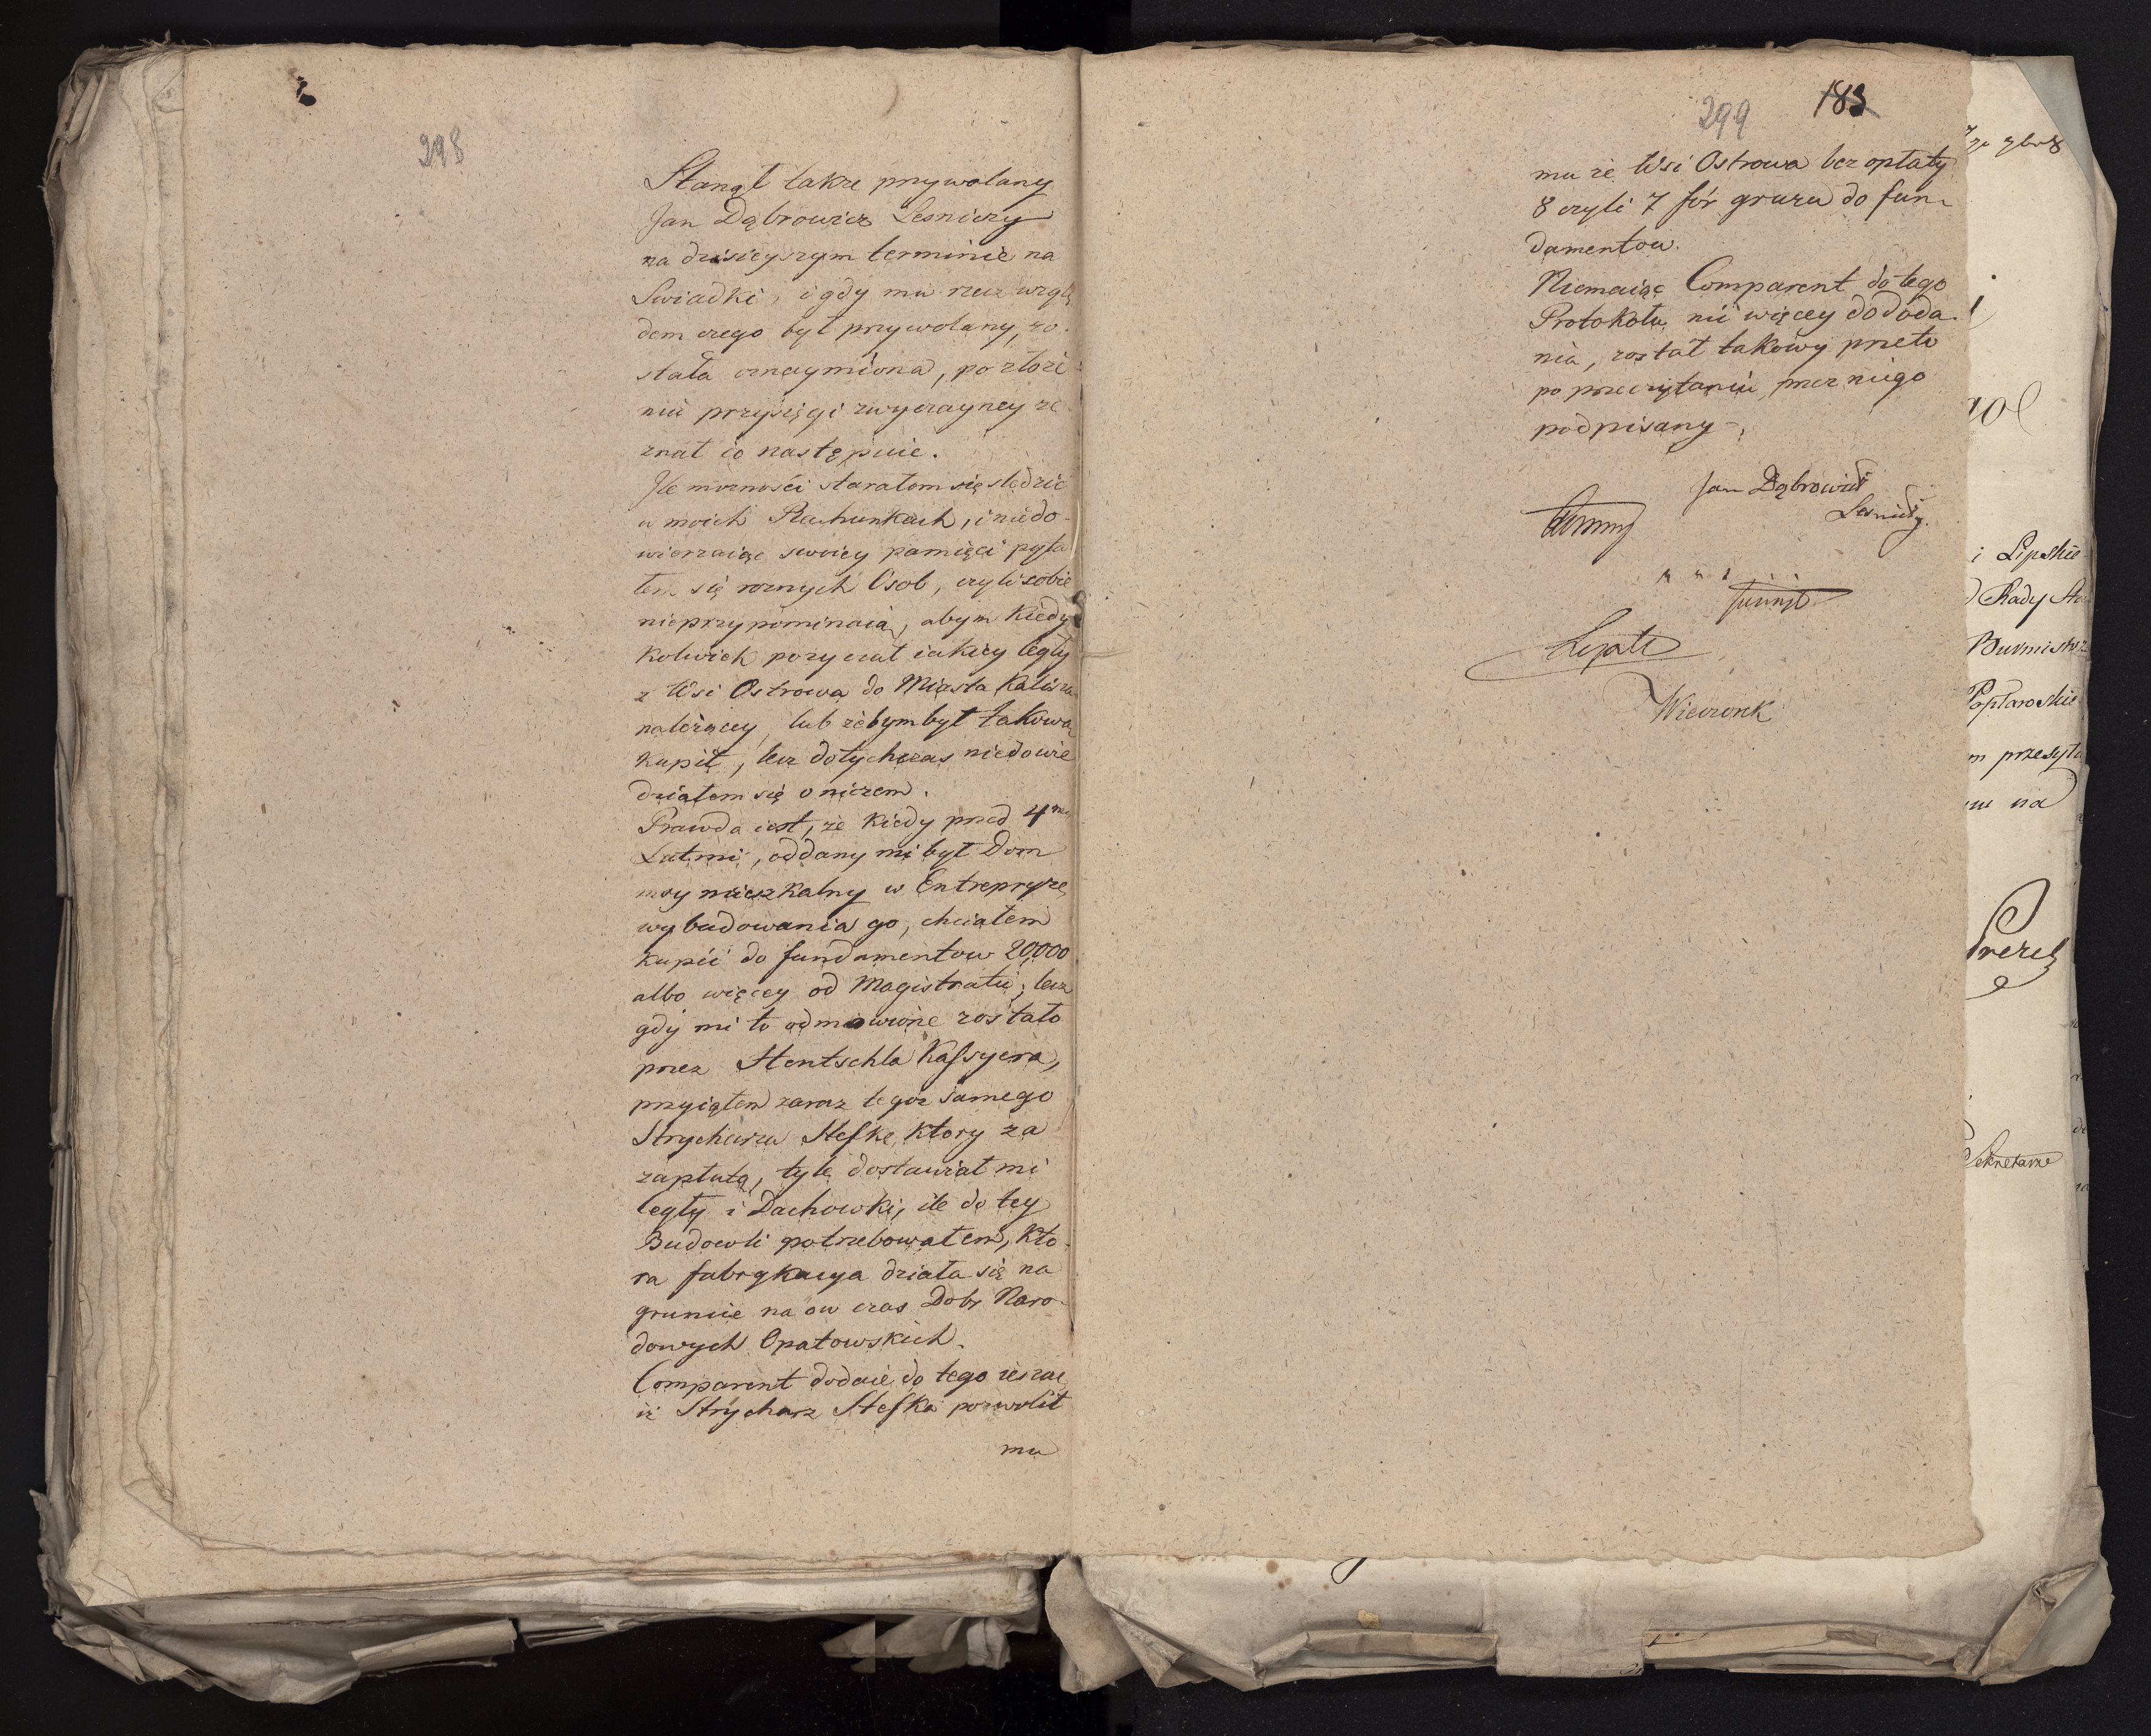 298
Stanął także przywołany
Jan Dąbrowicz Lesniczy
na dzisieyszym terminie na
Swiadki, i gdy mu rzecz wzglę
dem czego był przywołany, zo-
stała oznaymiona, po złoże
niu przysięgi zwyczayney ze
znał co następuie.
Ile możności starałem się sledzić
w moich Rachunkach, i niedo-
wierzaiąc swoiey pamięci pyta
łem się roznych Osob, czyli sobie
nieprzypominaią, abym kiedy
kolwiek pozyczał iakiey Cegły
z Wsi Ostrowa do Miasta Kalisza
należącey, lub żebym był takową
kupił, lecz dotychczas niedowie
działem się o niczem.
Prawda iest, że kiedy przed 4ma
Latmi, oddany mi był Dom
moy mieszkalny w Entrepryzę
wybudowania go, chciałem
kupić do fundamentow 20,000
albo więcey od Magistratu; lecz
gdy mi to odmowione zostało
przez Hentschla Kassyera,
przyiąłem zaraz tegoż samego
Strycharza Stefke, ktory za
zapłatą, tyle dostawiał mi
Cegły i Dachowki, ile do tey
Budowli potrzebowałem, kto-
ra fabrykacya działa się na
gruncie na ow czas Dobr Naro-
dowych Opatowskich.
Comparent dodaie do tego ieszcze
iż Strycharz Stefka pozwolił
mu
299 183
mu ze Wsi Ostrowa bez opłaty
8 czyli 7 fór gruzu do fun-
damentow.
Niemaiąc Comparent do tego
Protokołu nic więcey do doda-
nia, został takowy przeto
po przeczytaniu przez niego
podpisany
Jan Dąbrowicz
Lesniczy.
Wieczorek
i Lipskie
Rady
Burmistrz
przesyła
na
Sekretarz